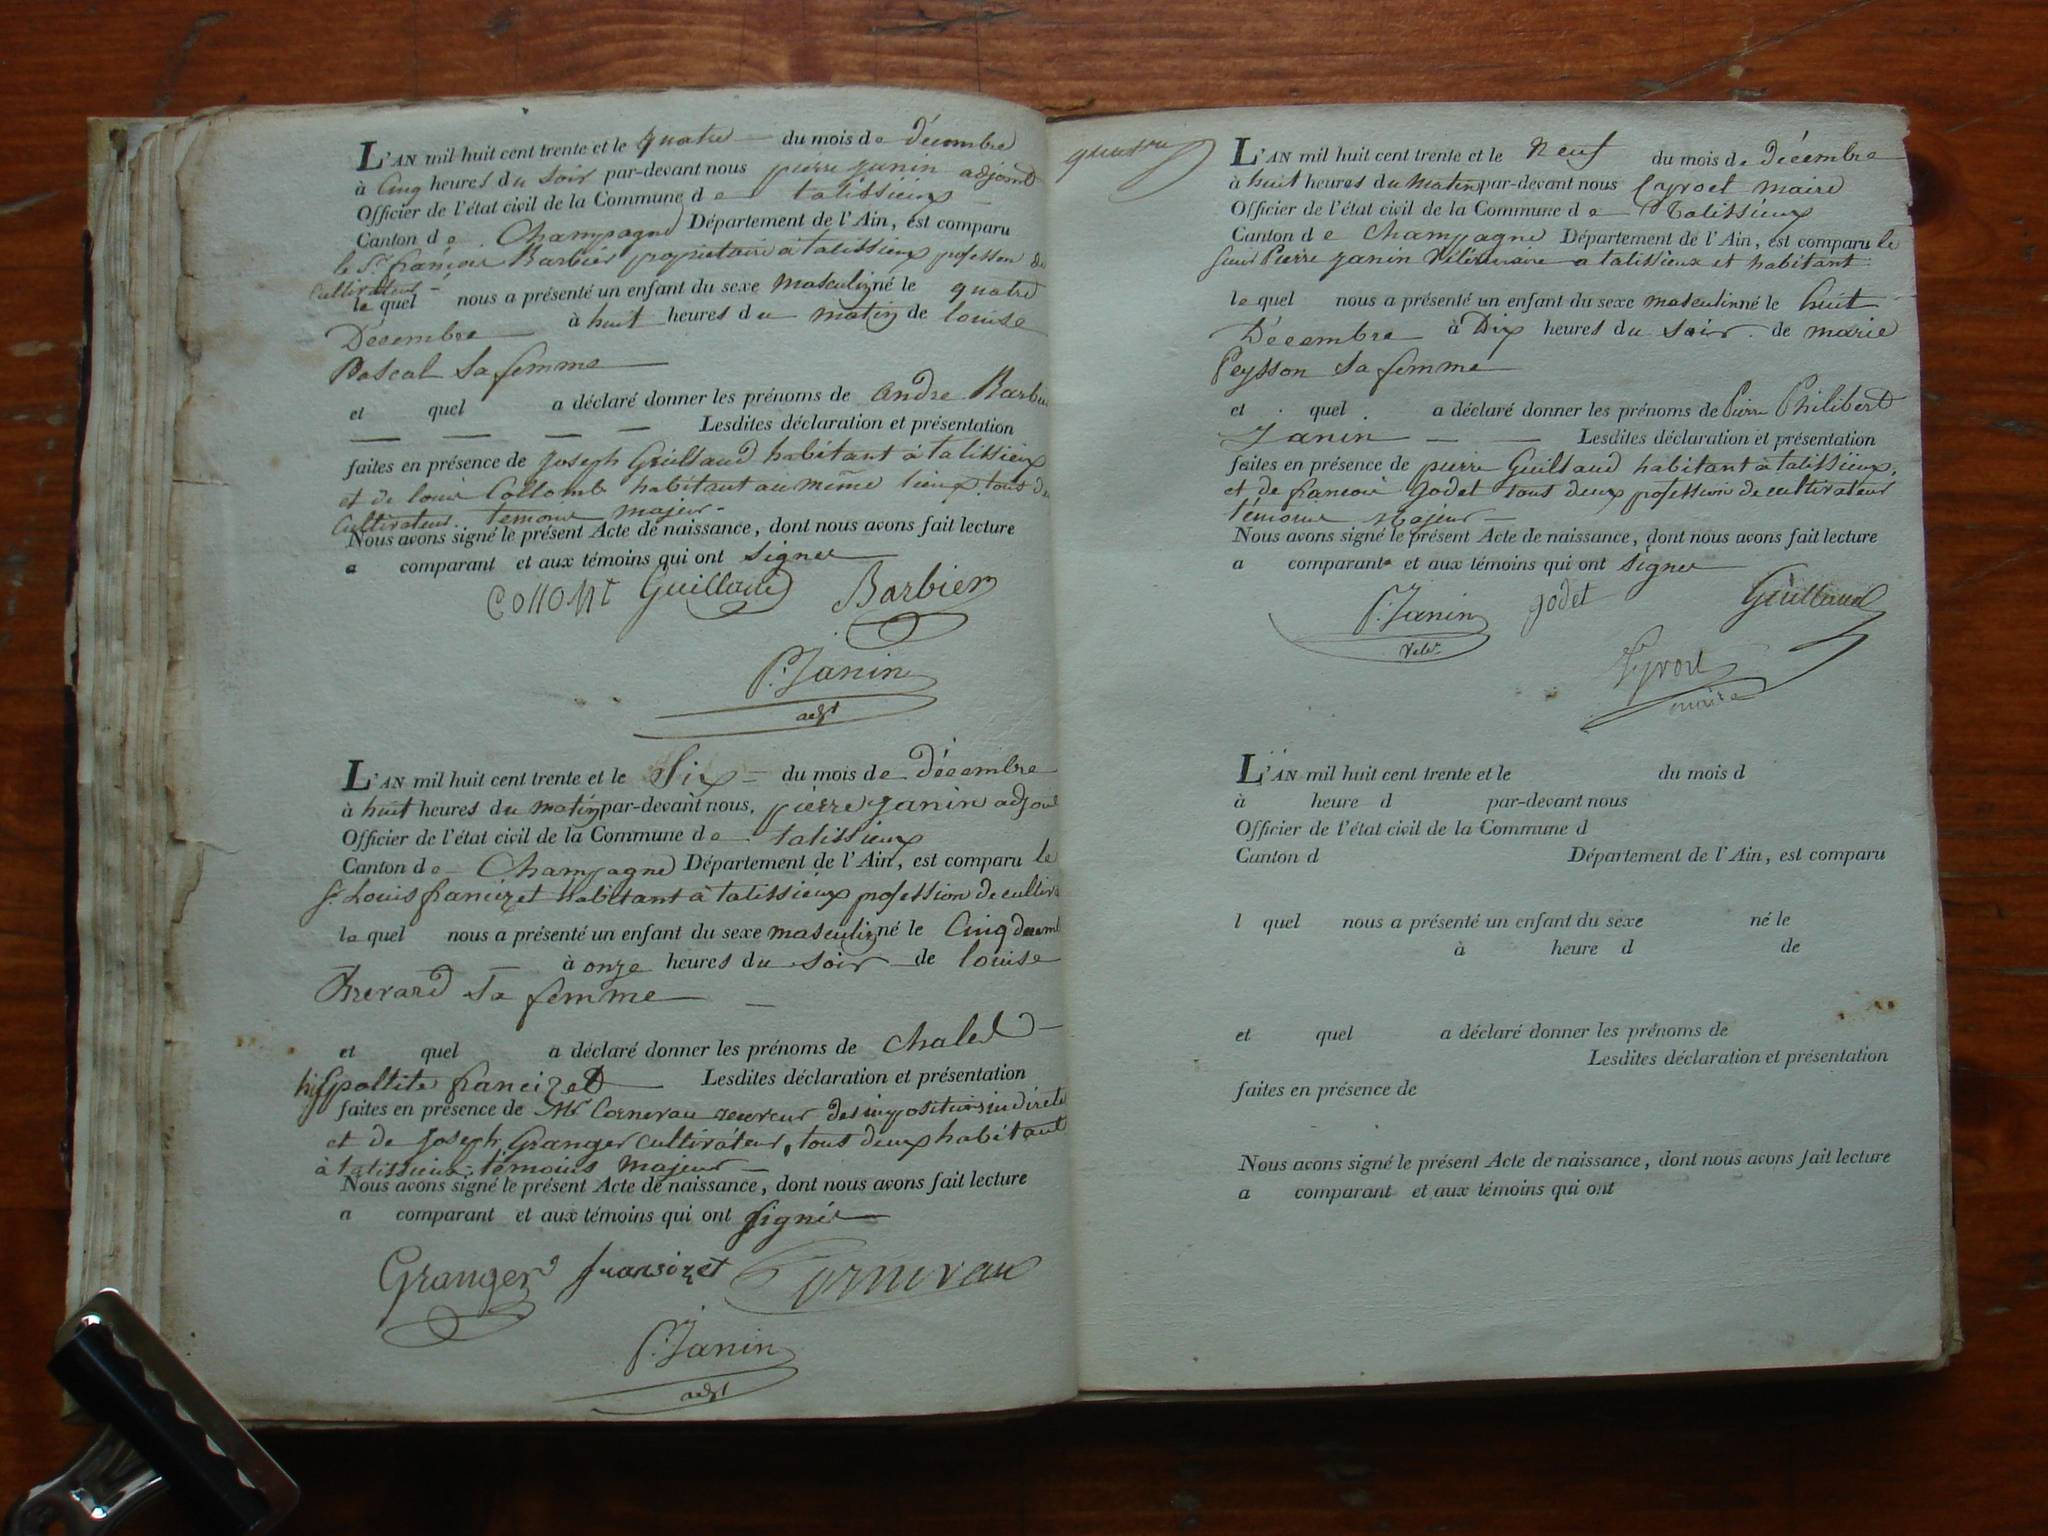 L'AN mil huit cent trente et le quatre du mois de décembre
à Cinq heures du Soir par-devant nous pierre janin adjoint
Officier de l'état civil de la Commune de talissieux
Canton de Champagne Département de l'Ain, est comparu
le Sr françois Barbier propriétaire à talissieux profession de
Cultivateur
lequel nous a présenté un enfant du sexe masculin né le quatre
Décembre à huit heures du matin de louise
Pascal Sa femme
et quel a déclaré donner les prénoms de andre Barbier
Lesdites déclaration et présentation
faites en présence de joseph Guillaud habitant à talissieux
et de louis Collomb habitant au même lieux, tous de
Cultivateur temoins majeur
Nous avons signé le présent Acte de naissance, dont nous avons fait lecture
a comparant et aux témoins qui ont Signer
Guillaud Barbier
P. Janin
adjt
L'AN mil huit cent trente et le Six du mois de décembre
à huit heures du matin par-devant nous, pierre janin adjoint
Officier de l'état civil de la Commune de talissieux
Canton de Champagne Département de l'Ain, est comparu le
Sr Louis francizet habitant à talissieux profession de cultiva
lequel nous a présenté un enfant du sexe masculin né le Cinq decemb
à onze heures du soir de louise
Sa femme
et quel a déclaré donner les prénoms de
francizet Lesdites déclaration et présentation
faites en présence de Mr Cornevau des impositions indirecte
et de Joseph Granger cultivateur, tous deux habitant
à talissieux, témoins majeur
Nous avons signé le présent Acte de naissance, dont nous avons fait lecture
a comparant et aux témoins qui ont signés
Granger fransizet Cornevau
P. Janin
adjt
L'AN mil huit cent trente et le Neuf du mois de décembre
à huit heures du Matin par-devant nous maire
Officier de l'état civil de la Commune de Talissieux
Canton de Champagne Département de l'Ain, est comparu le
Sieur Pierre janin Véterinaire a talissieux et habitant
lequel nous a présenté un enfant du sexe masculin né le huit
Décembre à Dix heures du soir de marie
Peysson Sa femme
et quel a déclaré donner les prénoms de Pierre Philibert
Janin Lesdites déclaration et présentation
faites en présence de pierre Guillaud habitant à talissieux,
et de francois godet tous deux profession de cultivateur
témoins Majeur
Nous avons signé le présent Acte de naissance, dont nous avons fait lecture
a comparant et aux témoins qui ont Signer
P. Janin godet Guillaud
maire
L'AN mil huit cent trente et le du mois d
à heure d par-devant nous
Officier de l'état civil de la Commune d
Canton d Département de l'Ain, est comparu
l quel nous a présenté un enfant du sexe né le
à heure d de
et quel a déclaré donner les prénoms de
Lesdites déclaration et présentation
faites en présence de
Nous avons signé le présent Acte de naissance, dont nous avons fait lecture
a comparant et aux témoins qui ont